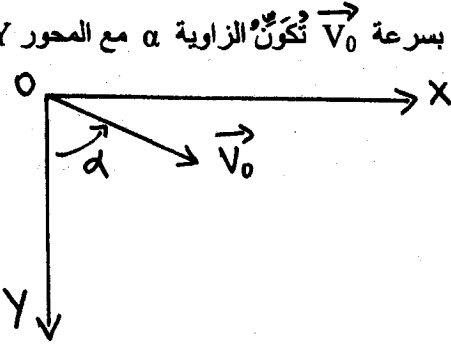 بسرعة V₀ تُكَوِّنُ الزاوية α مع المحور Y
O X
α V₀
Y